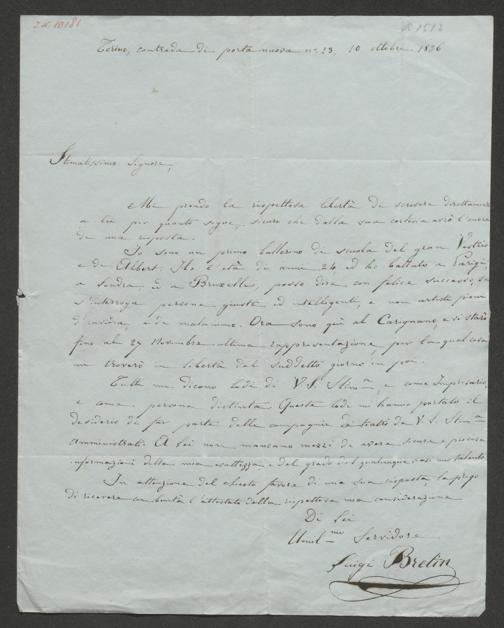 Torino, contrada di porta nuova n.º 23, 10 ottobre 1836
Stimatissimo Signore,
Mi prendo la rispettosa libertà di scrivere direttamente
a lei per quanto segue, sicuro che dalla sua cortesia avrò l'onore
di una risposta.
Io sono un primo ballerino di scuola del gran Vestris
e di Albert. Ho l'età di anni 24 ed ho ballato a Parigi,
a Londra ed a Bruxelles, posso dire con felice successo, se
s'interroga persone giuste ed intelligenti, e non artiste piene
d'invidia, e di malanimo. Ora sono quì al Carignano, e vi starò
fino al 27 Novembre ultima rappresentazione, per la qual cosa
mi troverò in libertà dal suddetto giorno in poi.
Tutti mi dicono lodi di V. S. Stim.ma e come Impresario,
e come persona distinta. Queste lodi mi hanno portato il
desiderio di far parte delle compagnie di teatri da V. S. Stim.ma
amministrati. A lei non mancano mezzi di avere sicure e precise
informazioni della mia esattezza e del grado del qualunque siasi mio talento.
In attenzione del favore di una sua risposta, la prego
di ricevere con bontà l'attestato della rispettosa mia considerazione
Di Lei
Umil.mo Servidore
Luigi Bretin